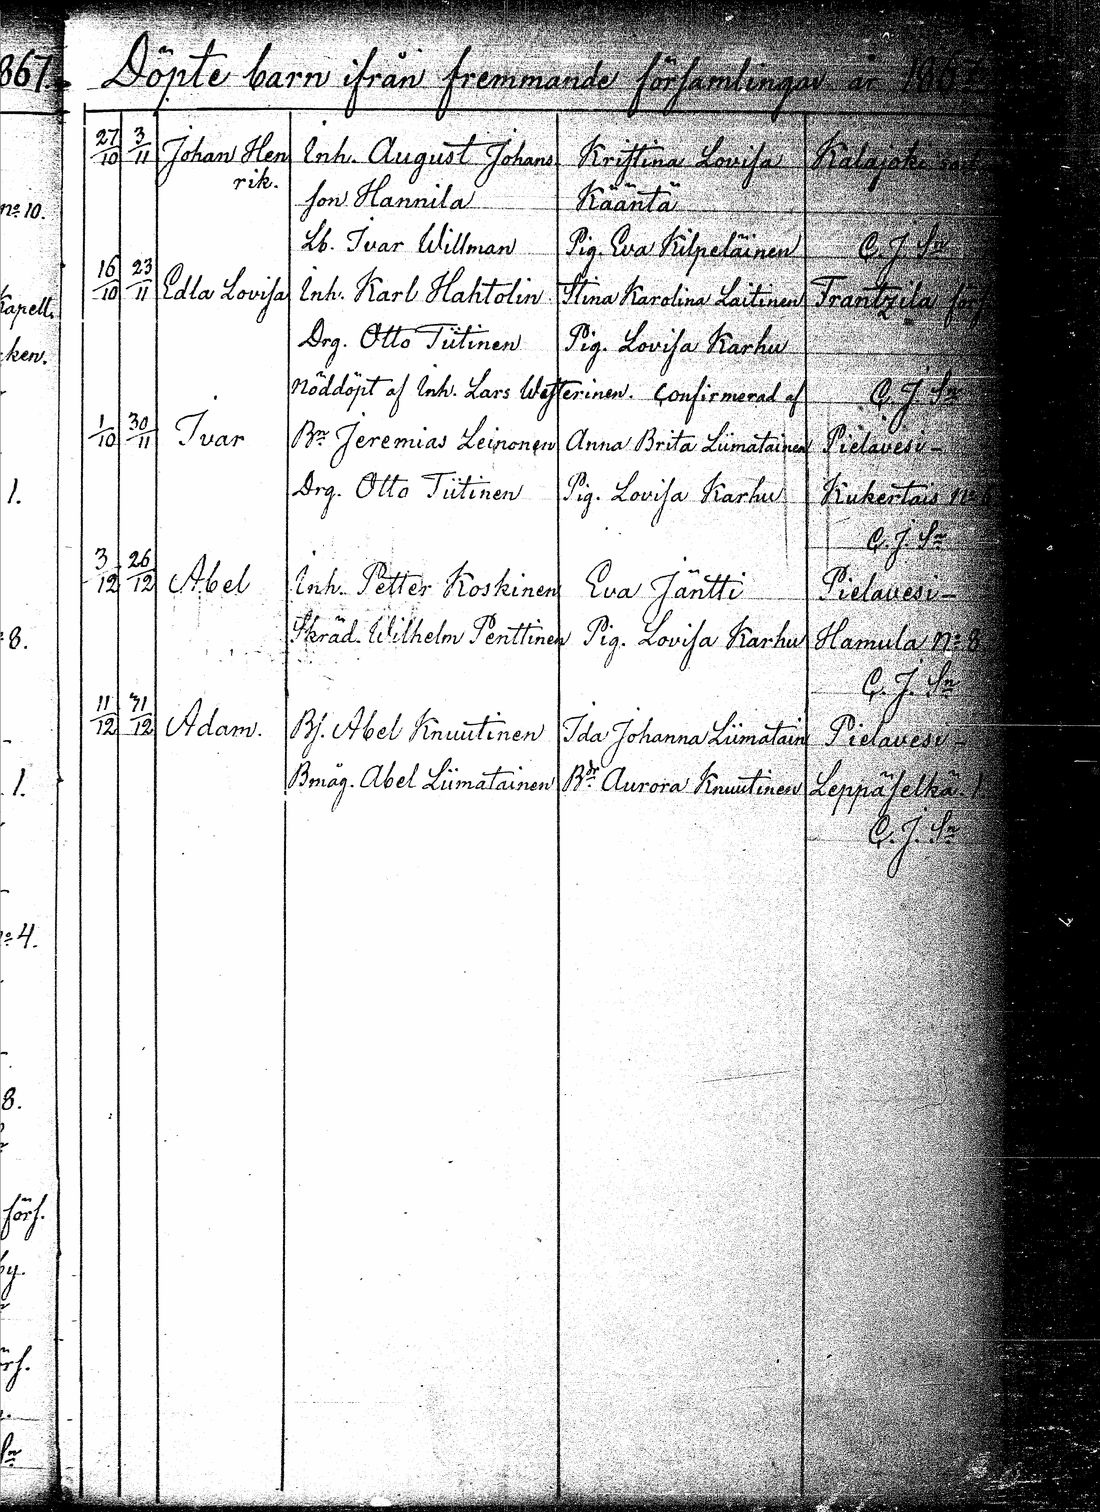 867. Döpte barn ifrån fremmande församlingar år 1867
27/10 3/11 Johan Hen Inh. August Johans Kristina Lovisa Kalajoki
rik. son Hannila Kääntä
no 10.
Lb. Ivar Willman Pig. Eva Kilpeläinen C. J. Sn
16/10 23/11 Edla Lovisa Inh. Karl Hahtolin Stina Karolina Laitinen Frantzila förs
Kapell.
Drg. Otto Tiitinen Pig. Lovisa Karhu
ken.
Nöddöpt af Inh. Lars Westerinen. Confirmerad af C. J. Sn
1/10 30/11 Ivar Bn Jeremias Leinonen Anna Brita Liimatainen Pielavesi -
1. Drg. Otto Tiitinen Pig. Lovisa Karhu Kukertais No
C. J. Sn
3/12 26/12 Abel Inh. Petter Koskinen Eva Jäntti Pielavesi -
8. Skräd. Wilhelm Penttinen Pig. Lovisa Karhu Hamula No 8
C. J. Sn
11/12 31/12 Adam. Bs. Abel Knuutinen Ida Johanna Liimatain Pielavesi -
1. Bmåg. Abel Liimatainen Bdr Aurora Knuutinen Leppäselkä. 1
C. J. Sn
no 4.
8.
förs.
by.
örs.
Sn